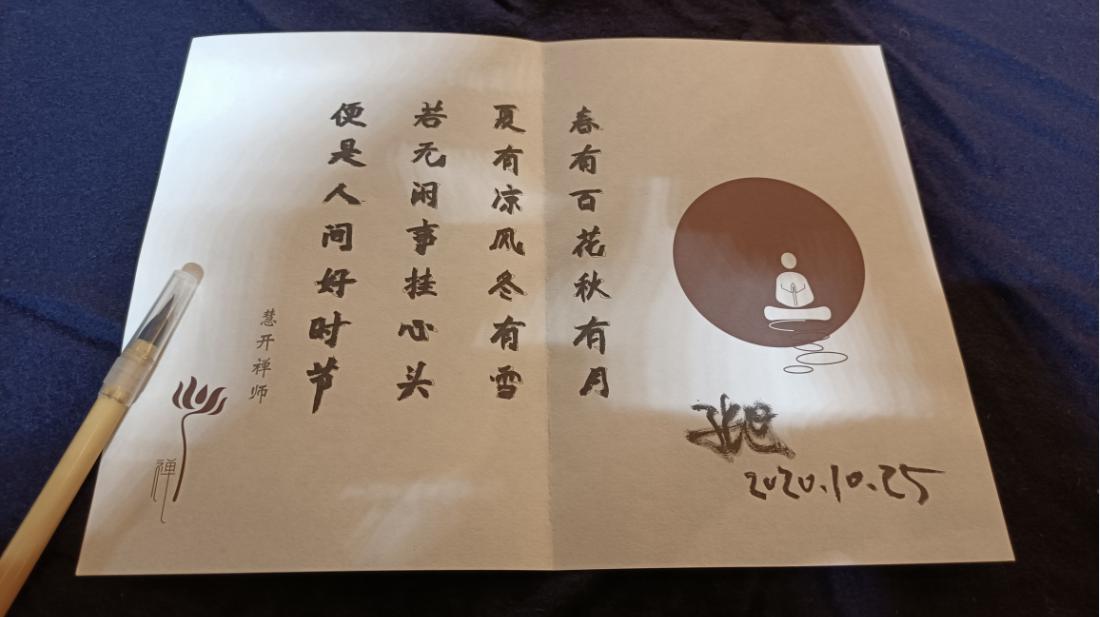 春有百花秋有月
夏有凉风冬有雪
若无闲事挂心头
便是人间好时节
慧开禅师
禅
2020.10.25